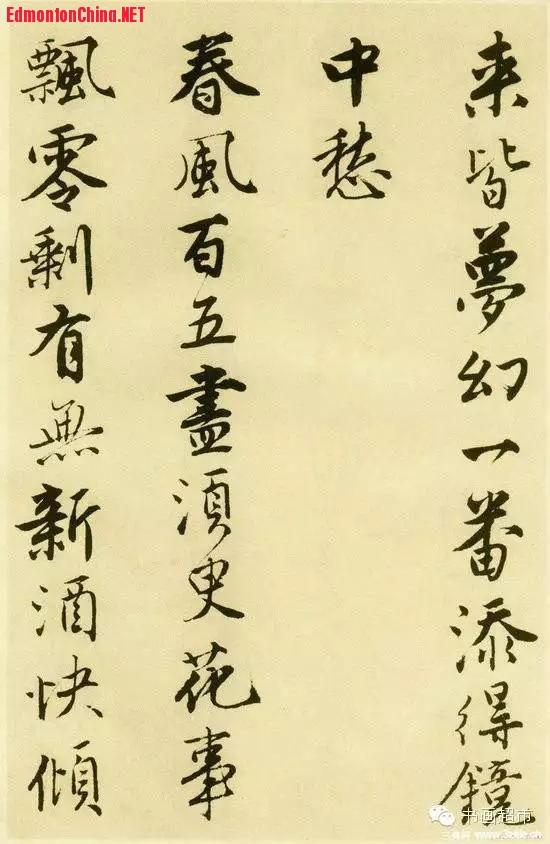 EdmontonChina.NET
来皆夢幻一番添得鏡
中愁
春風百五盡須臾花事
飄零剩有無新酒快傾
书画超市